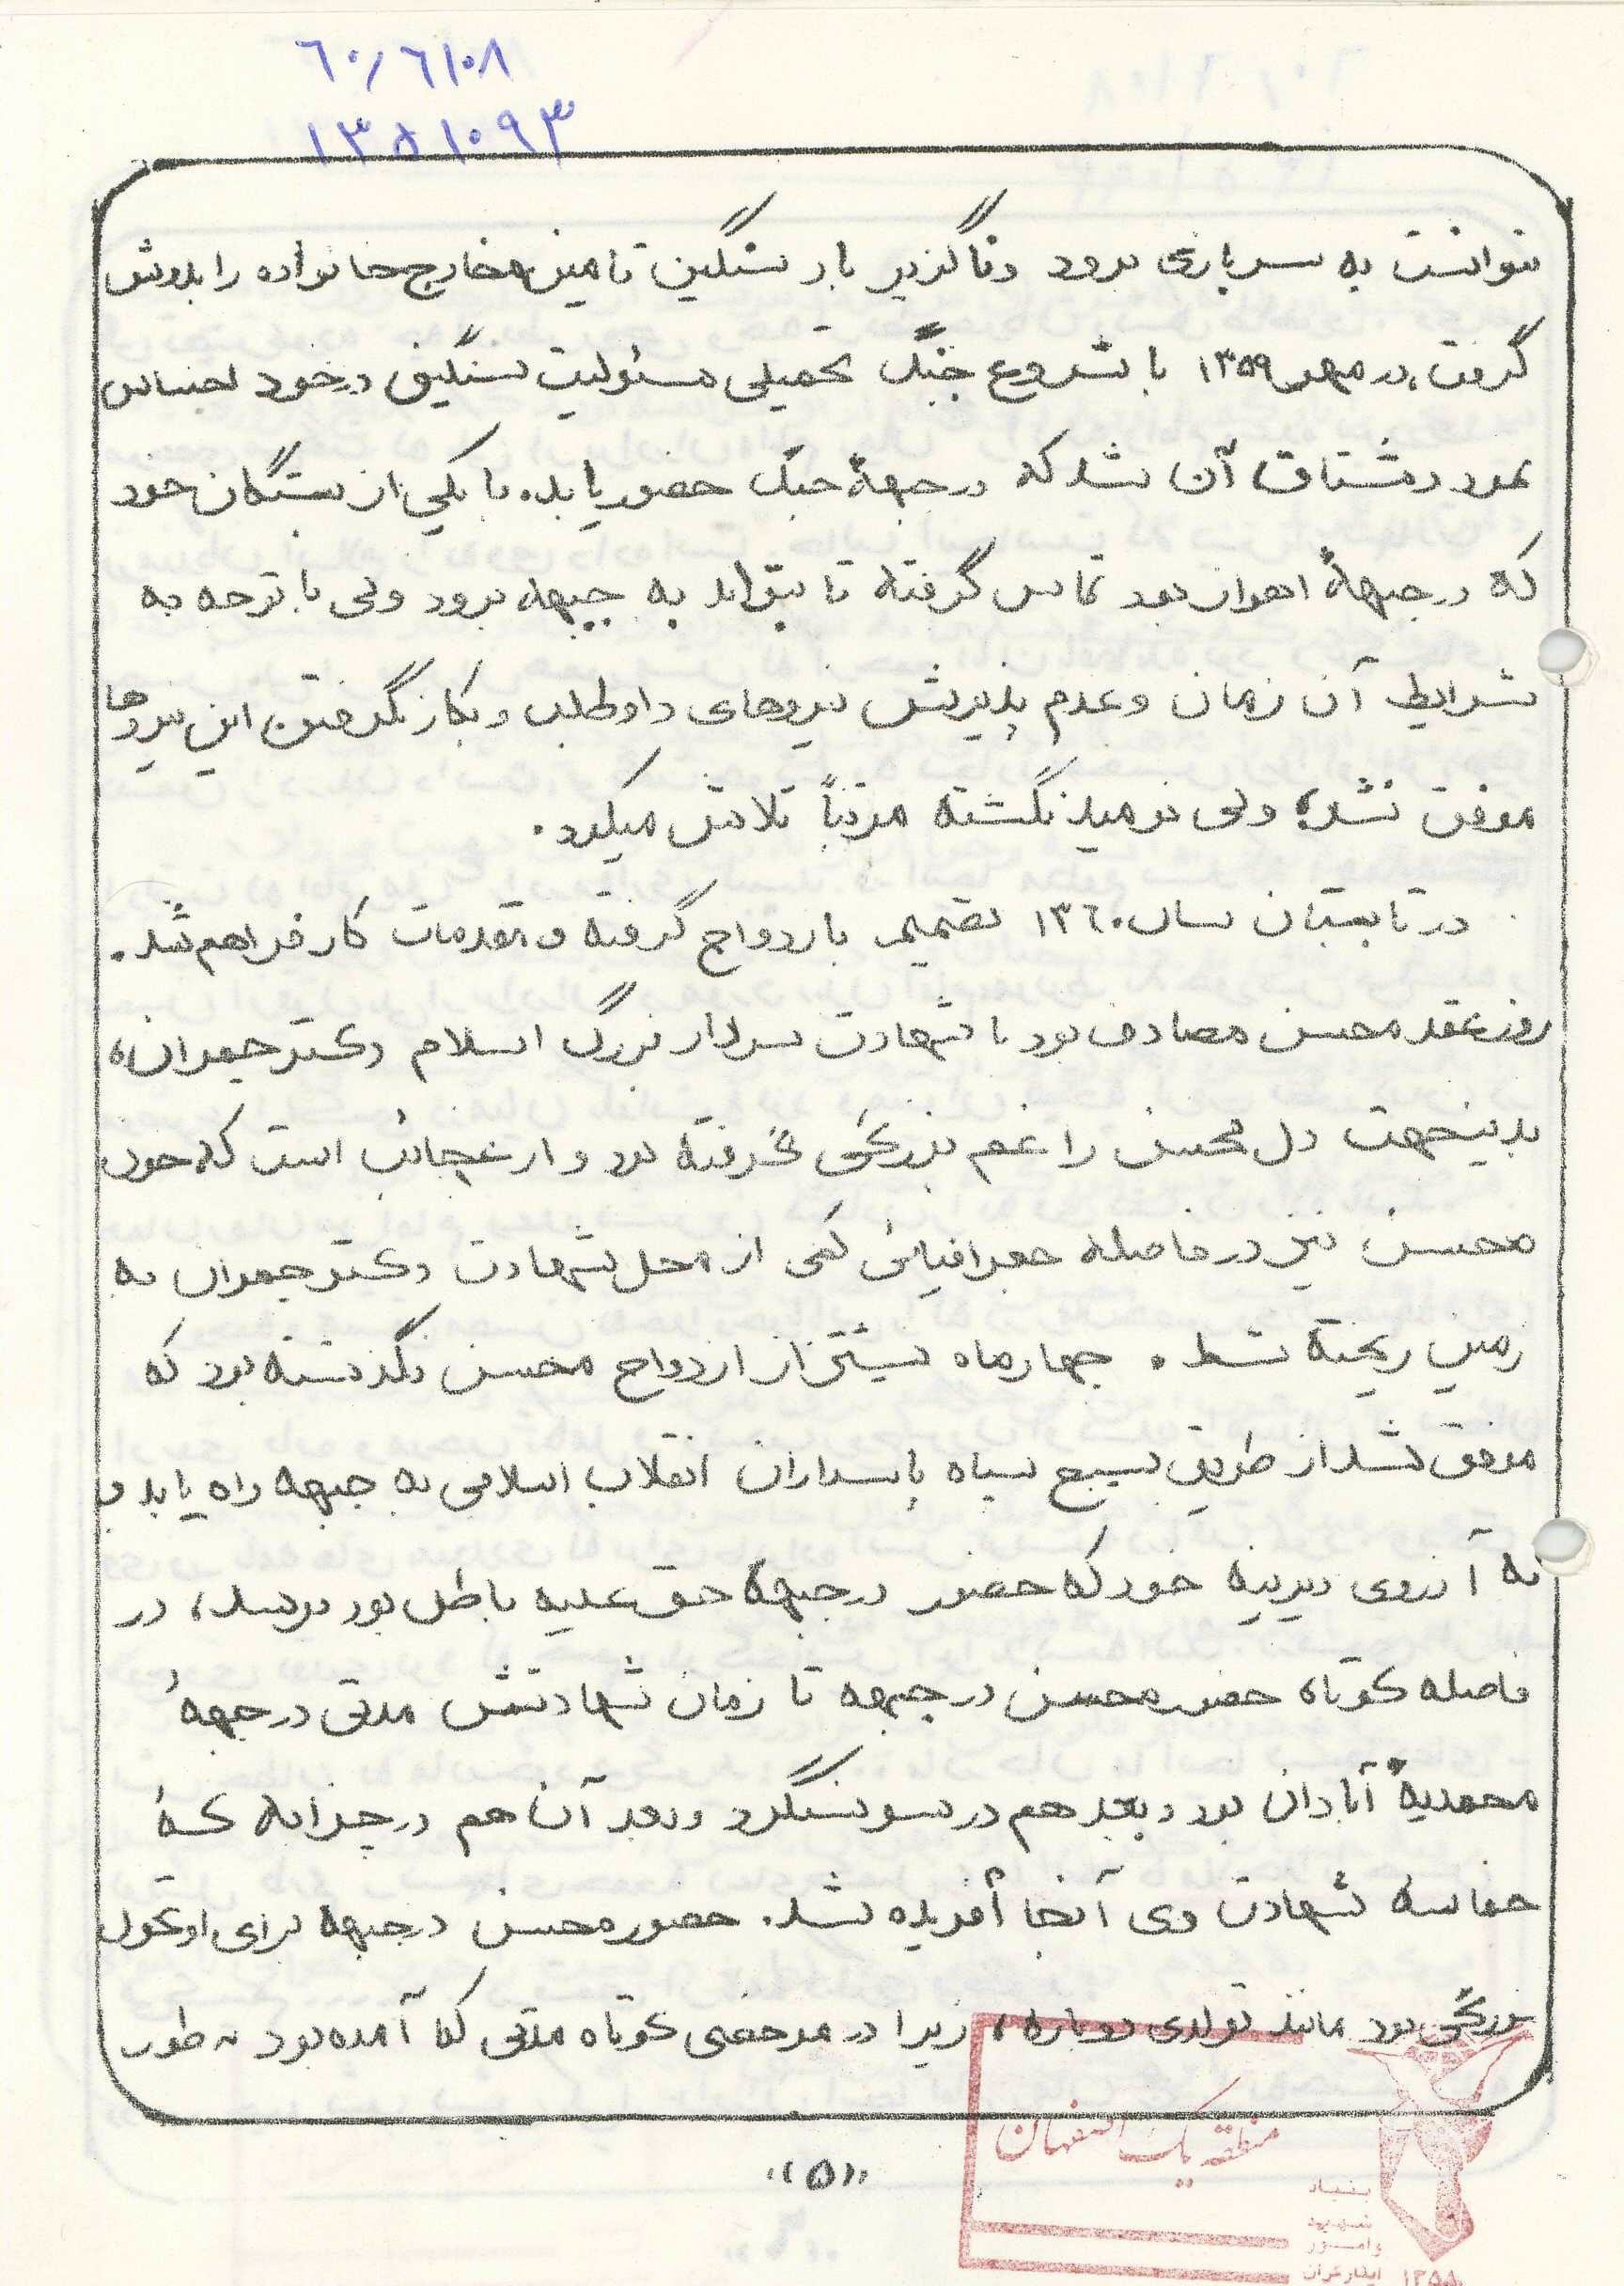 ۶۰/۶۱۰۸
۱۳۵۱۰۹۳
نتوانست به سربازی برود و ناگزیر بار سنگین تامین مخارج خانواده را بدوش
گرفت، در مهر ۱۳۵۹ با شروع جنگ تحمیلی مسئولیت سنگینی در خود احساس
نمود و مشتاق آن شد که در جبههٔ جنگ حضور یابد. با یکی از بستگان خود
که در جبههٔ اهواز بود تماس گرفته تا بتواند به جبهه برود ولی با توجه به
شرایط آن زمان و عدم پذیرش نیروهای داوطلب و بکار نگرفتن این نیروها
موفق نشد؛ ولی نومید نگشته مرتباً تلاش میکرد.
در تابستان سال ۱۳۶۰ تصمیم بازدواج گرفته و مقدمات کار فراهم شد.
روز عقد محسن مصادف بود با شهادت سردار بزرگ اسلام دکتر چمران،
بدینجهت دل محسن را غم بزرگی گرفته بود و از عجائب است که خون
محسن نیز در فاصله جغرافیائی کمی از محل شهادت دکتر چمران به
زمین ریخته شد. چهار ماه بیشتر از ازدواج محسن نگذشته بود که
موفق شد از طریق بسیج سپاه پاسداران انقلاب اسلامی به جبهه راه یابد و
به آرزوی دیرینه خود که حضور در جبههٔ حق علیه باطل بود برسد، در
فاصله کوتاه حضور محسن در جبهه تا زمان شهادتش مدتی در جبههٔ
محمدیهٔ آبادان بود و بعد هم در سوسنگرد و بعد آن هم در چزابه که
حماسه شهادت وی آنجا آفریده شد. حضور محسن در جبهه برای او تحول
بزرگی بود مانند تولدی دوباره، زیرا در مرخصی کوتاه مدتی که آمده بود به طور
«(۵)»
منطقه یک اصفهان
بنیاد
شهید
و امور
ایثارگران
۱۳۵۸